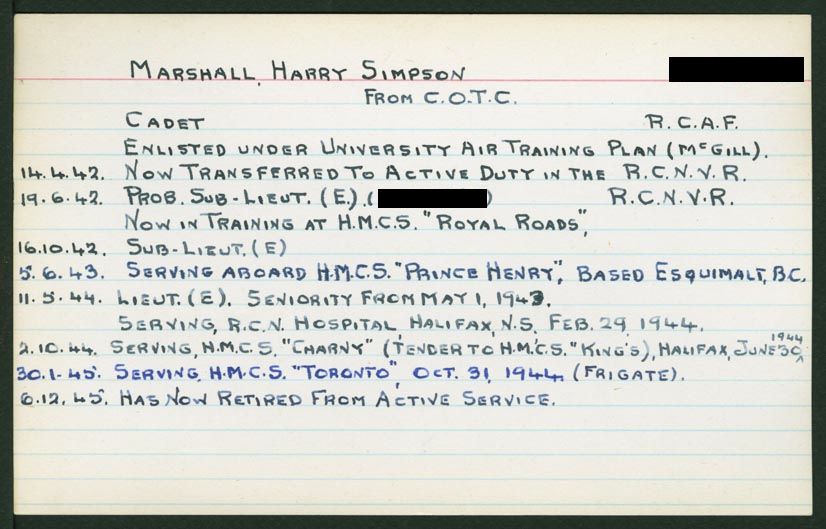 MARSHALL, HARRY SIMPSON
FROM C.O.T.C.
CADET R.C.A.F.
ENLISTED UNDER UNIVERSITY AIR TRAINING PLAN (McGILL).
14.4.42. NOW TRANSFERRED TO ACTIVE DUTY IN THE R.C.N.V.R.
19.6.42. PROB. SUB-LIEUT. (E.) ( ) R.C.N.V.R.
NOW IN TRAINING AT H.M.C.S. "ROYAL ROADS",
16.10.42. SUB-LIEUT. (E)
5.6.43. SERVING ABOARD H.M.C.S. "PRINCE HENRY", BASED ESQUIMALT, B.C.
11.5.44. LIEUT. (E). SENIORITY FROM MAY 1, 1943.
SERVING, R.C.N. HOSPITAL HALIFAX, N.S. FEB. 29, 1944.
2.10.44. SERVING, H.M.C.S. "CHARNY" (TENDER TO H.M.C.S. "KING'S), HALIFAX, JUNE 30, 1944
30.1.45. SERVING, H.M.C.S. "TORONTO", OCT. 31, 1944, (FRIGATE).
6.12.45. HAS NOW RETIRED FROM ACTIVE SERVICE.